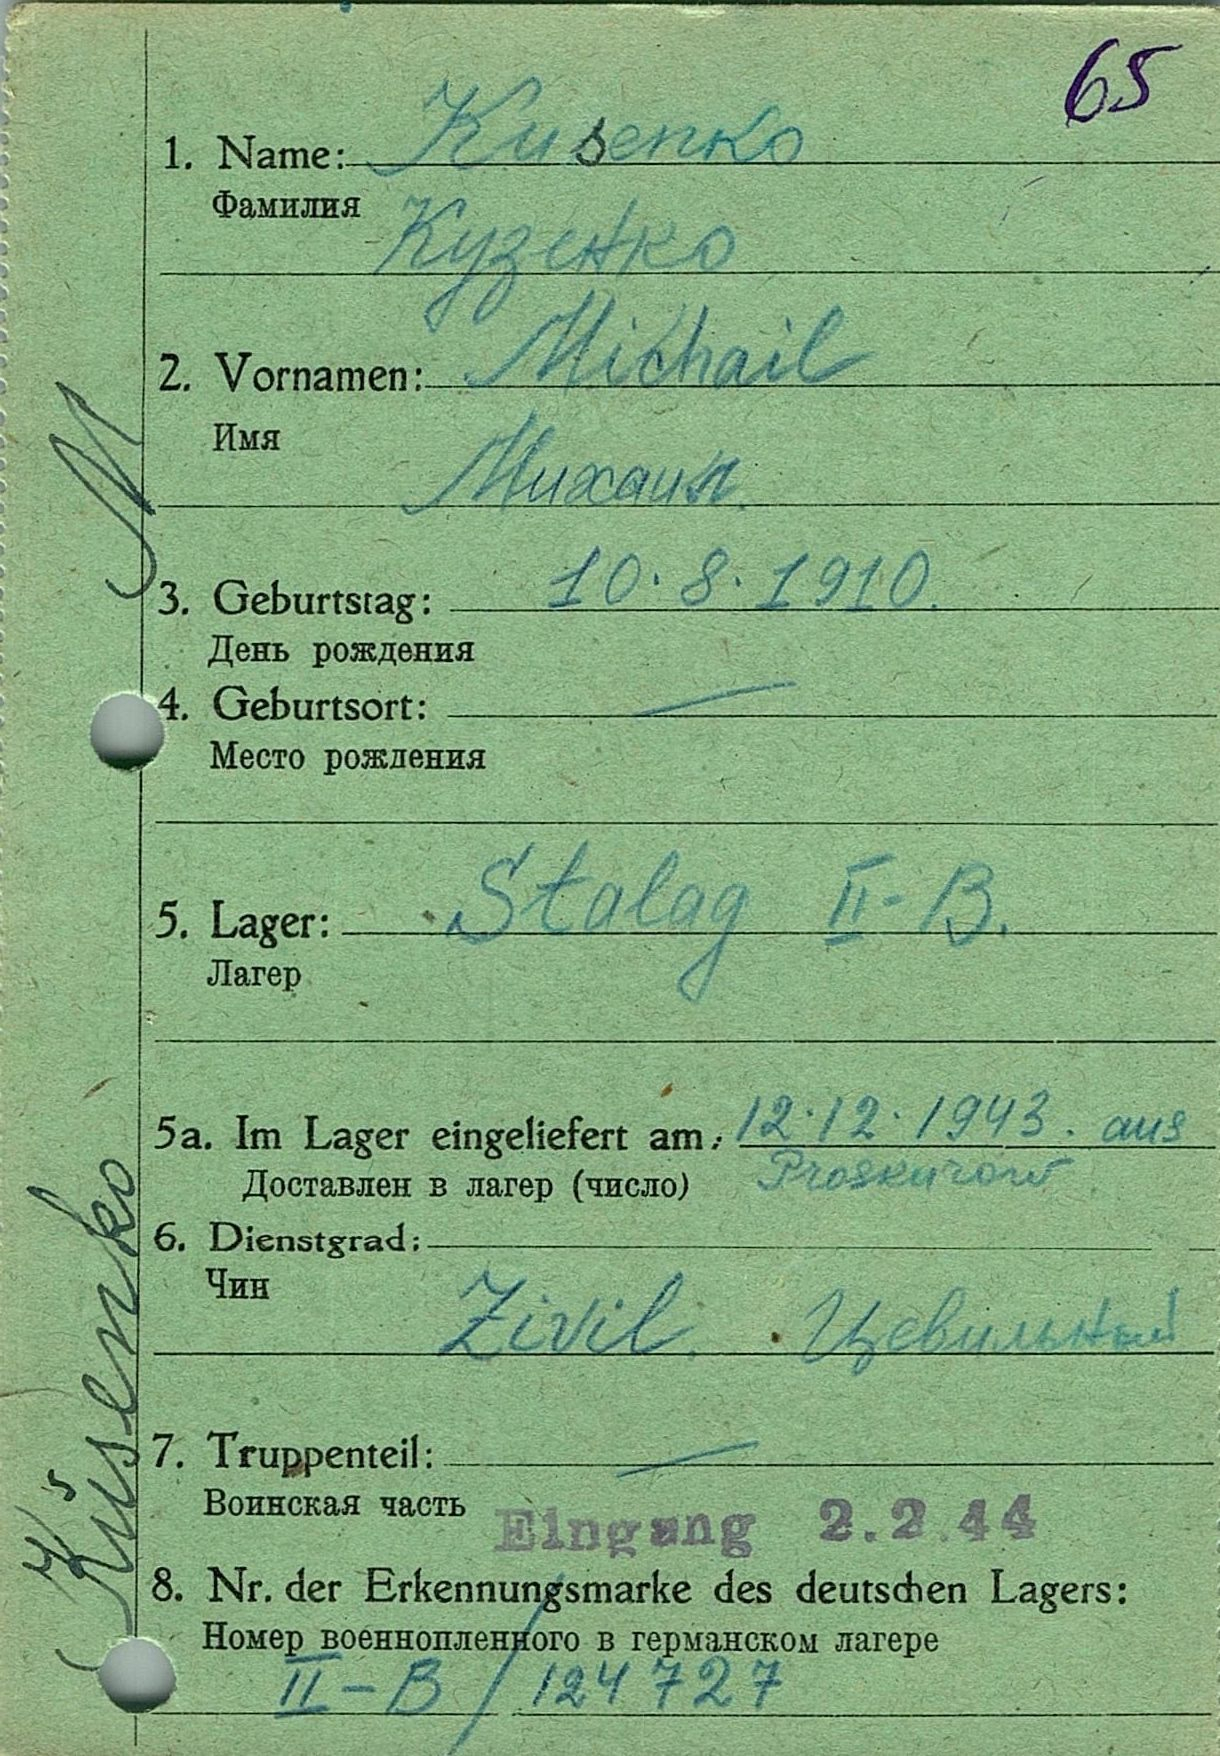 65
1. Name: Kusenko
Фамилия
Кузенко
2. Vornamen: Michail
Имя
Михаил
3. Geburtstag: 10.8.1910.
День рождения
4. Geburtsort: —
Место рождения
5. Lager: Stalag II-B.
Лагер
5a. Im Lager eingeliefert am: 12.12.1943. aus
Доставлен в лагер (число) Proskurow
6. Dienstgrad:
Чин
Zivil. Цевильный
7. Truppenteil: —
Воинская часть
Eingang 2.2.44
8. Nr. der Erkennungsmarke des deutschen Lagers:
Номер военнопленного в германском лагере
II-B/124727
Kusenko M